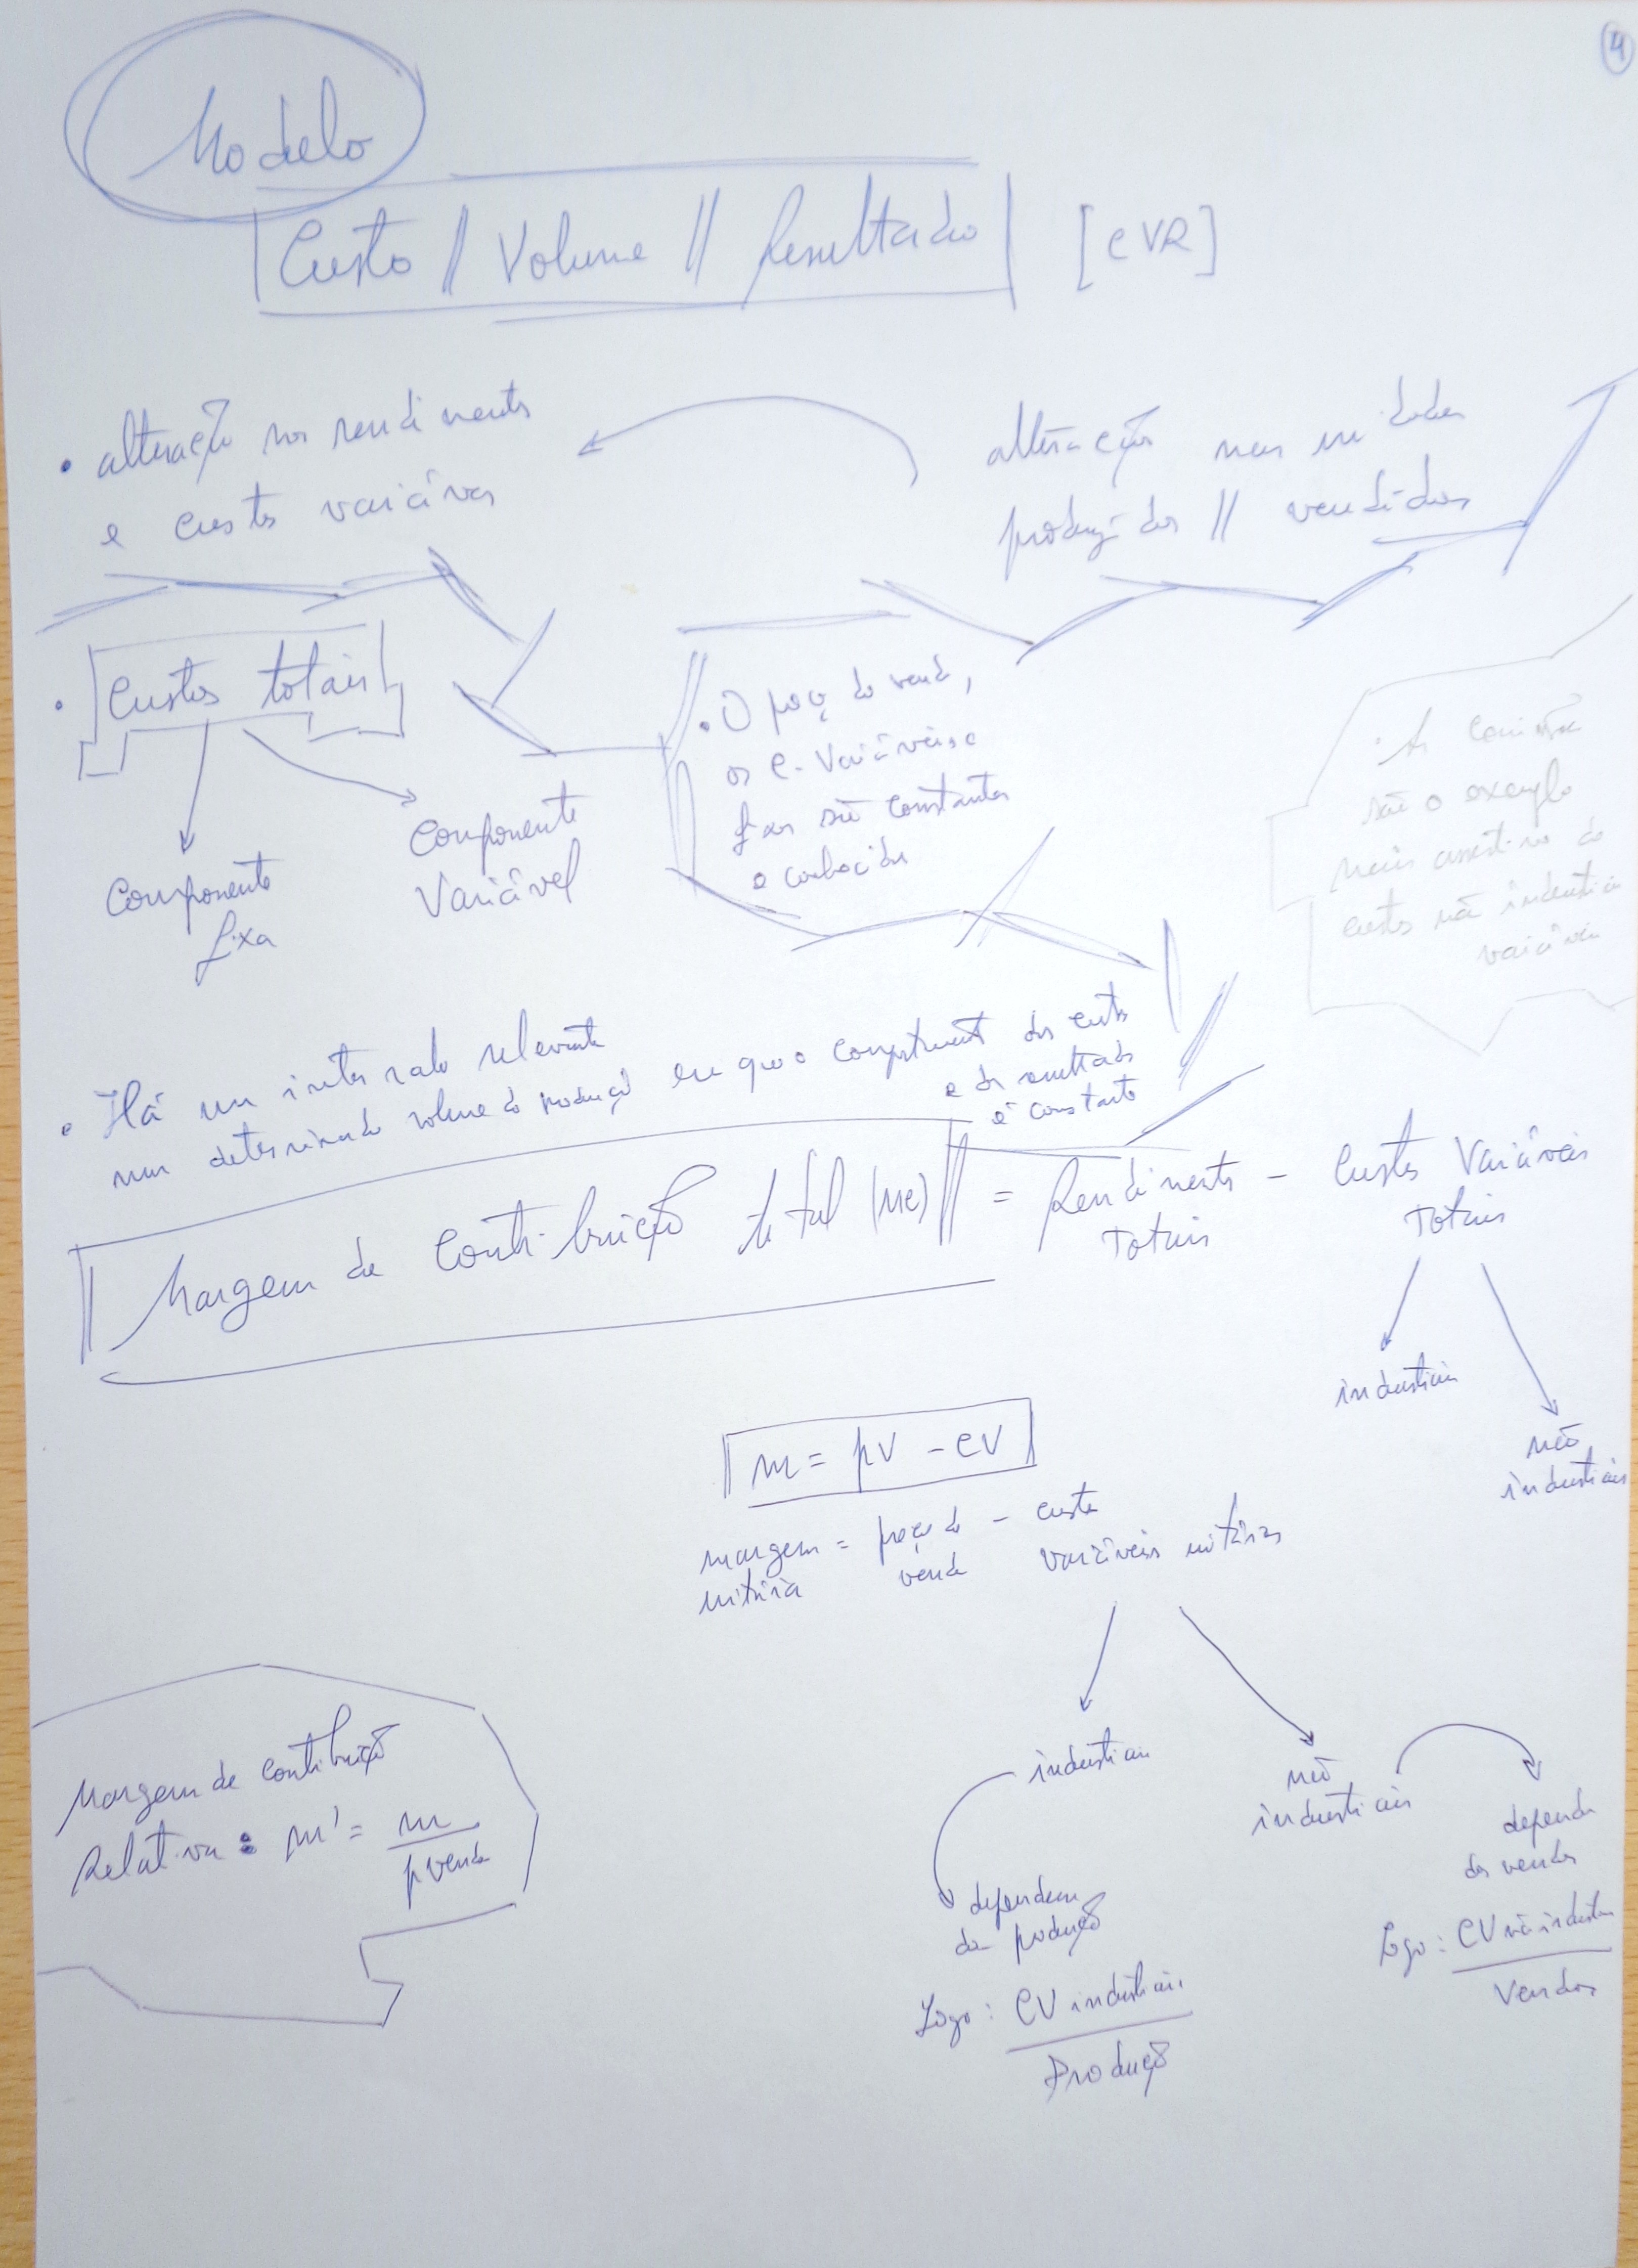 4
Modelo
Custo // Volume // Resultado [CVR]
• alteração nos rendimentos
e custos variáveis
alteração nas unidades
produzidas // vendidas
• Custos totais
Componente
fixa
Componente
Variável
• O preço de venda,
os C. Variáveis e
fixos são constantes
e conhecidos
• As comissões
são o exemplo
mais assertivo de
custos não industriais
variáveis
• Há um intervalo relevante
num determinado volume de produção em que o comportamento dos custos
e dos resultados
é constante
Margem de Contribuição total (MC) = Rendimentos - Custos Variáveis
Totais Totais
industriais
não
industriais
m = pv - cv
margem = preço de - custos
unitária venda variáveis unitários
industriais
não
industriais
dependem
da produção
Logo: CV industriais
Produção
depende
das vendas
Logo: CV não industriais
Vendas
Margem de Contribuição
Relativa: m' = m
p venda